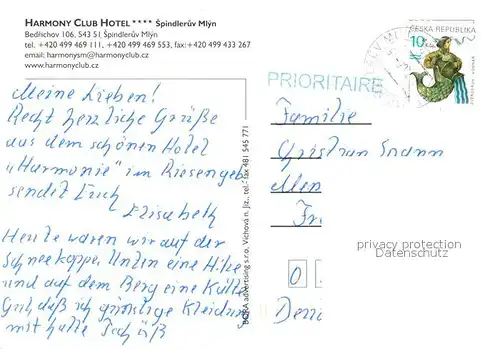 HARMONY CLUB HOTEL **** Špindlerův Mlýn
Bedřichov 106, 543 51 Špindlerův Mlýn
tel. +420 499 469 111, +420 499 469 553, fax:+420 499 433 267
email; harmonysm@harmonyclub.cz
www.harmonyclub.cz
Meine Lieben!
Recht herzliche Grüße
aus dem schönen Hotel
"Harmonie" im Riesengeb.
sendet Euch
Elisabeth
Heute waren wir auf der
Schneekoppe. Unten eine Hitze
und auf dem Berg eine Kälte
Gut, daß ich günstige Kleidung
mit hatte Tschüß
BORA advertising s.r.o. Víchová n. Jiz., tel.-fax 481 545 771
ČESKÁ REPUBLIKA
10
PRIORITAIRE
Familie
Christian
privacy protection
Datenschutz
0